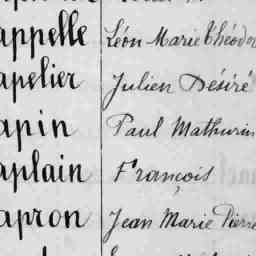 appelle Léon Marie Théodor
apelier Julien Désiré
apin Paul Mathurin
aplain François
apron Jean Marie Pierre